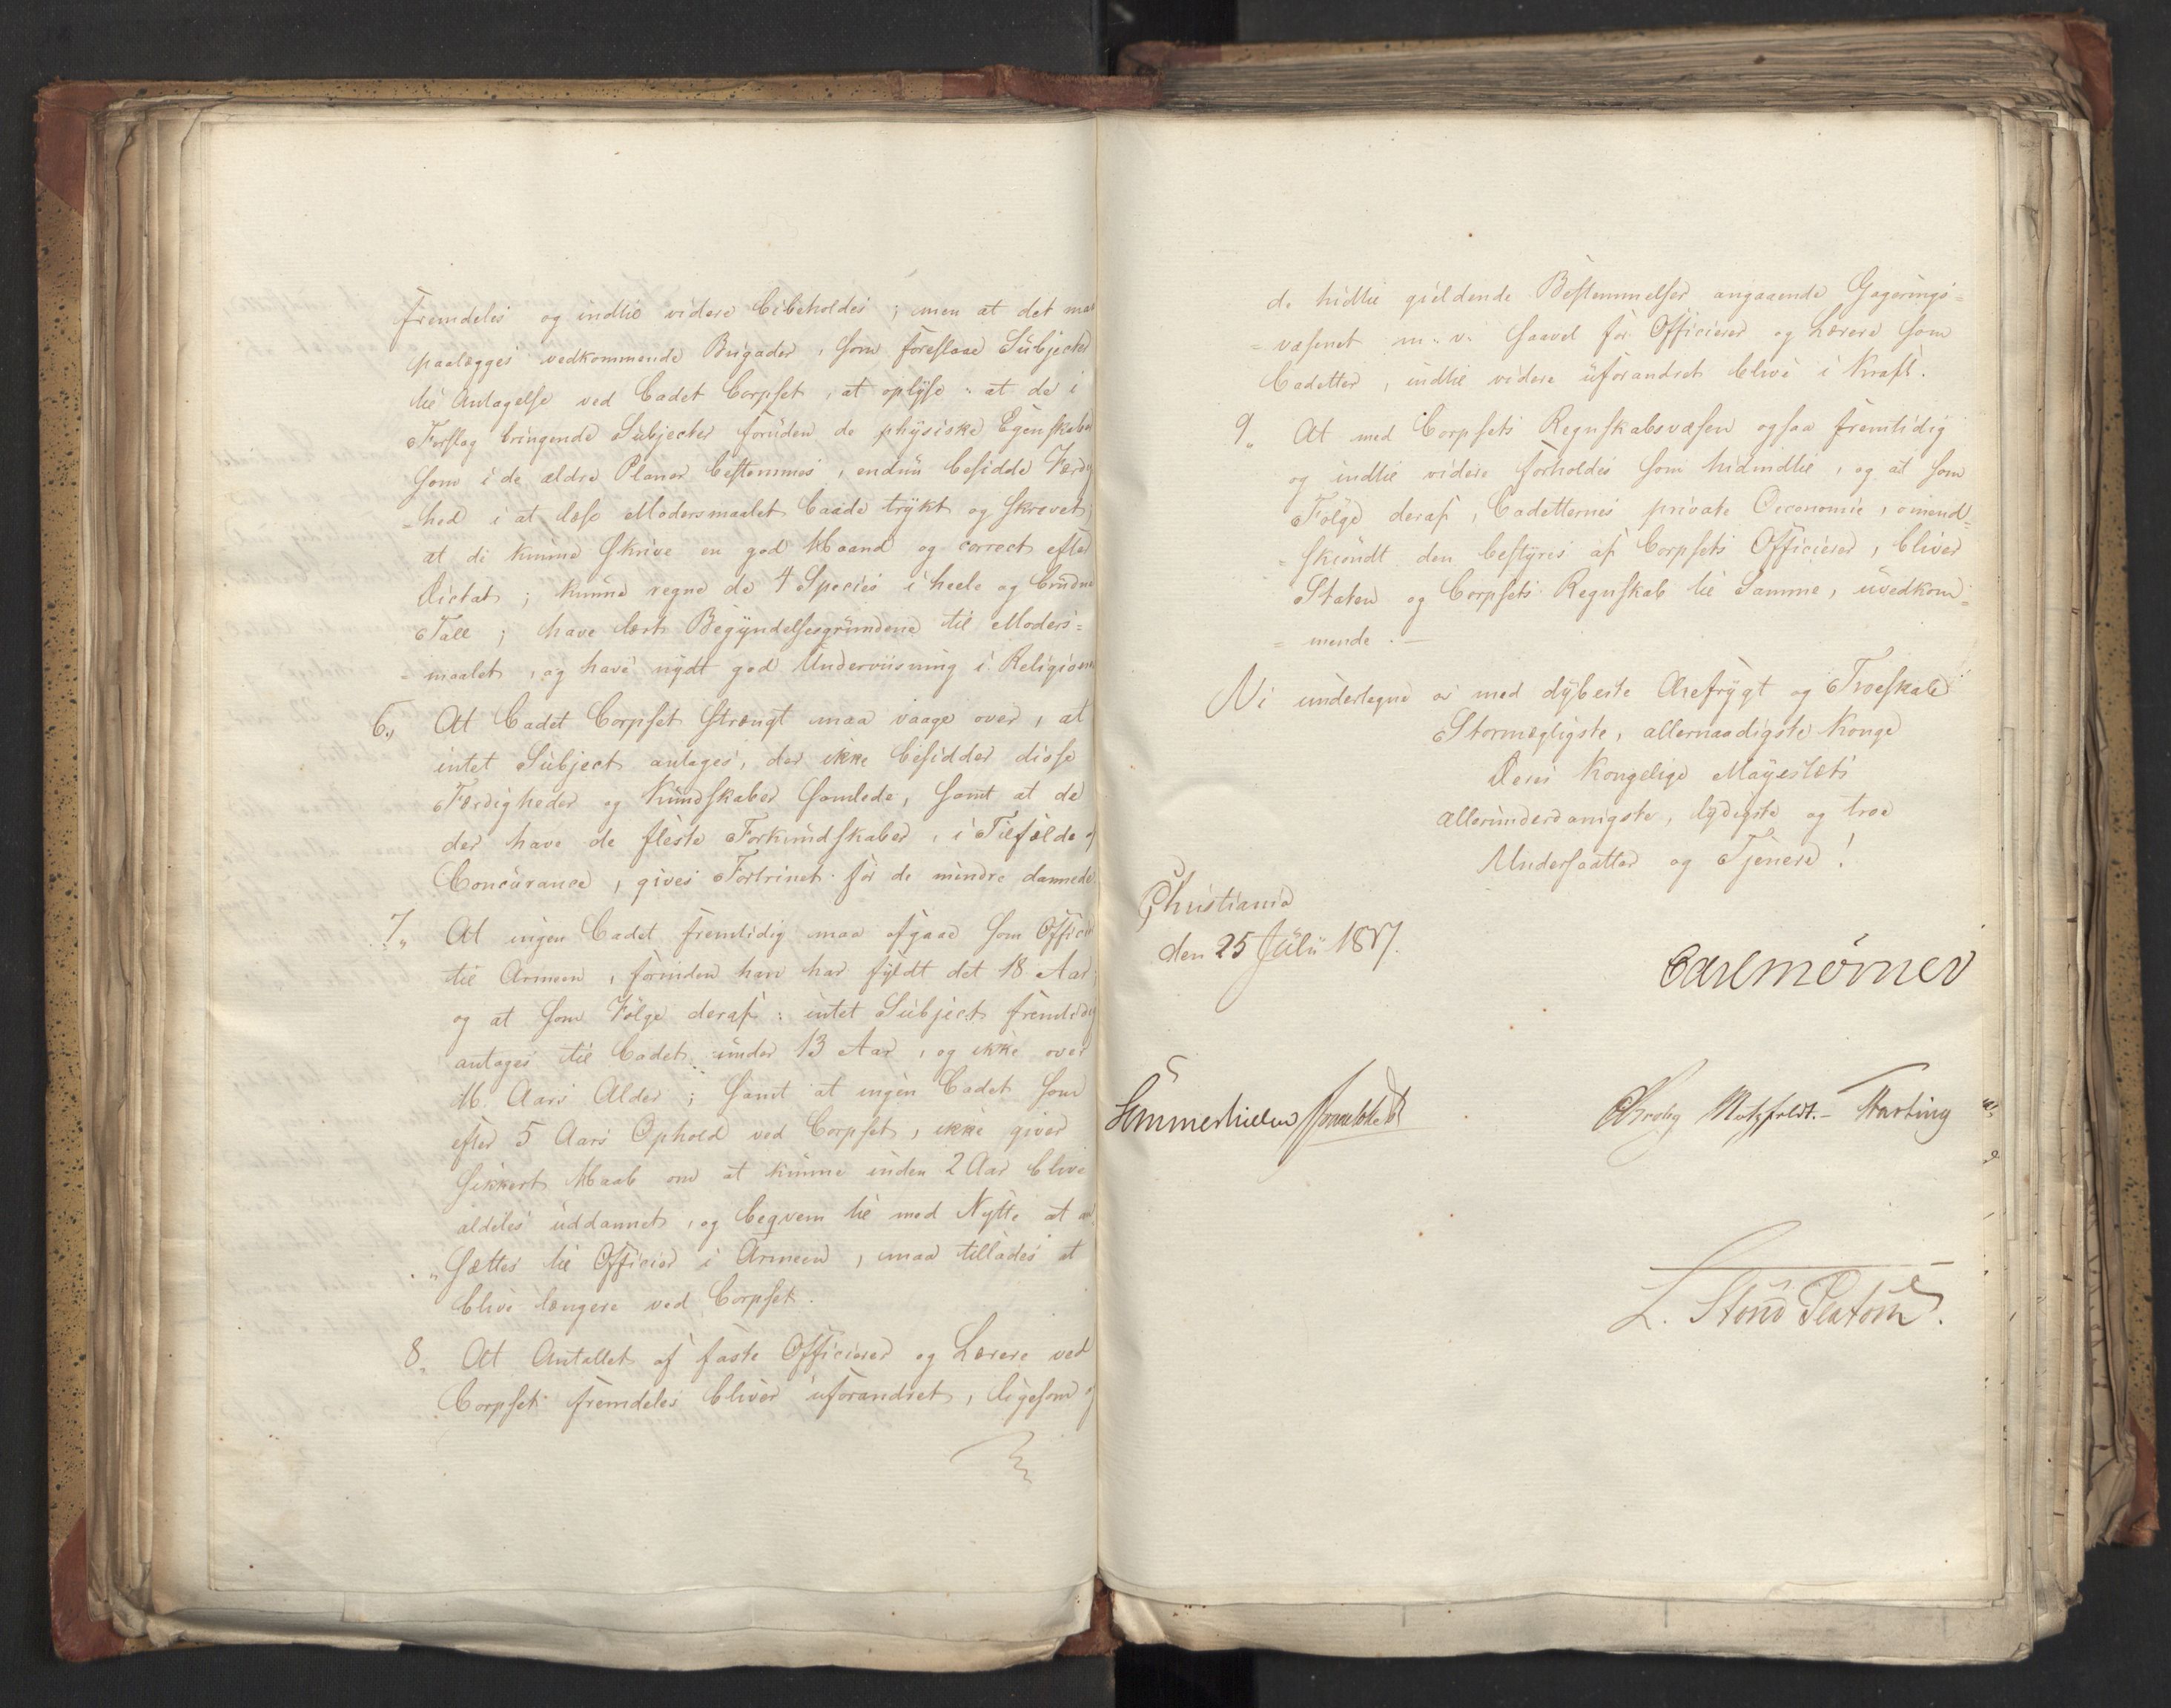 fremdeles og indtil videre bibeholdes; men at det maa
paalægges vedkommende Brigader, som foreslaae Subjecter
til Antagelse ved Cadet Corpset, at oplyse: at de i
Forslag bringende Subjecter foruden de physiske Egenskaber
som i de ældre Planer bestemmes, endnu besidde Færdig
=hed i at læse Modersmaalet baade trykt og skrevet;
at de kunne skrive en god Haand og correct efter
Dictat; kunne regne de 4 Species i heele og brudne
Tall; have lært Begyndelsesgrundene til Moders=
=maalet, og have nydt god Underviisning i Religionen
6., At Cadet Corpset strængt maa vaage over, at
intet Subject antages, der ikke besidder disse
Færdigheder og Kundskaber samlede, samt at de
der have de fleste Forkundskaber, i Tilfælde af
Concurance, gives Fortrinet for de mindre dannede.
7„ At ingen Cadet fremtidig maa afgaae som Officier
til Armeen, foruden han har fyldt det 18 Aar;
og at som Følge deraf: intet Subject fremtidig
antages til Cadet under 13 Aar, og ikke over
16 Aars Alder; samt at ingen Cadet som
efter 5 Aars Ophold ved Corpset, ikke giver
sikkert Haab om at kunne inden 2 Aar blive
aldeles uddannet, og beqvem til med Nytte at an
„sættes til Officier i Armeen, maa tillades at
blive længere ved Corpset.
8„ At Antallet af faste Officierer og Lærere ved
Corpset fremdeles bliver uforandret, ligesom og
de hidtil gieldende Bestemmelser angaaende Gagerings=
=væsenet m. v. saavel for Officierer og Lærere som
Cadetter, indtil videre uforandret blive i Kraft.
9„ At med Corpsets Regnskabsvæsen ogsaa fremtidig
og indtil videre forholdes som hidindtil, og at som
Følge deraf, Cadetternes private Oeconomie, omend=
=skiøndt den bestyres af Corpsets Officierer, bliver
Staten og Corpsets Regnskab til Samme, uvedkom=
=mende.—
Vi undertegne os med dybeste Ærefrygt og Troeskab
Stormægtigste, allernaadigste Konge
Deres Kongelige Mayestæts
allerunderdanigste, lydigste og troe
Undersaatter og Tjenere!
Christiania
den 25 Julii 1817.
Carl Mörner
Sommerhielm
Krohg Motzfeldt.— Hartvig
L. Stoud Platou.